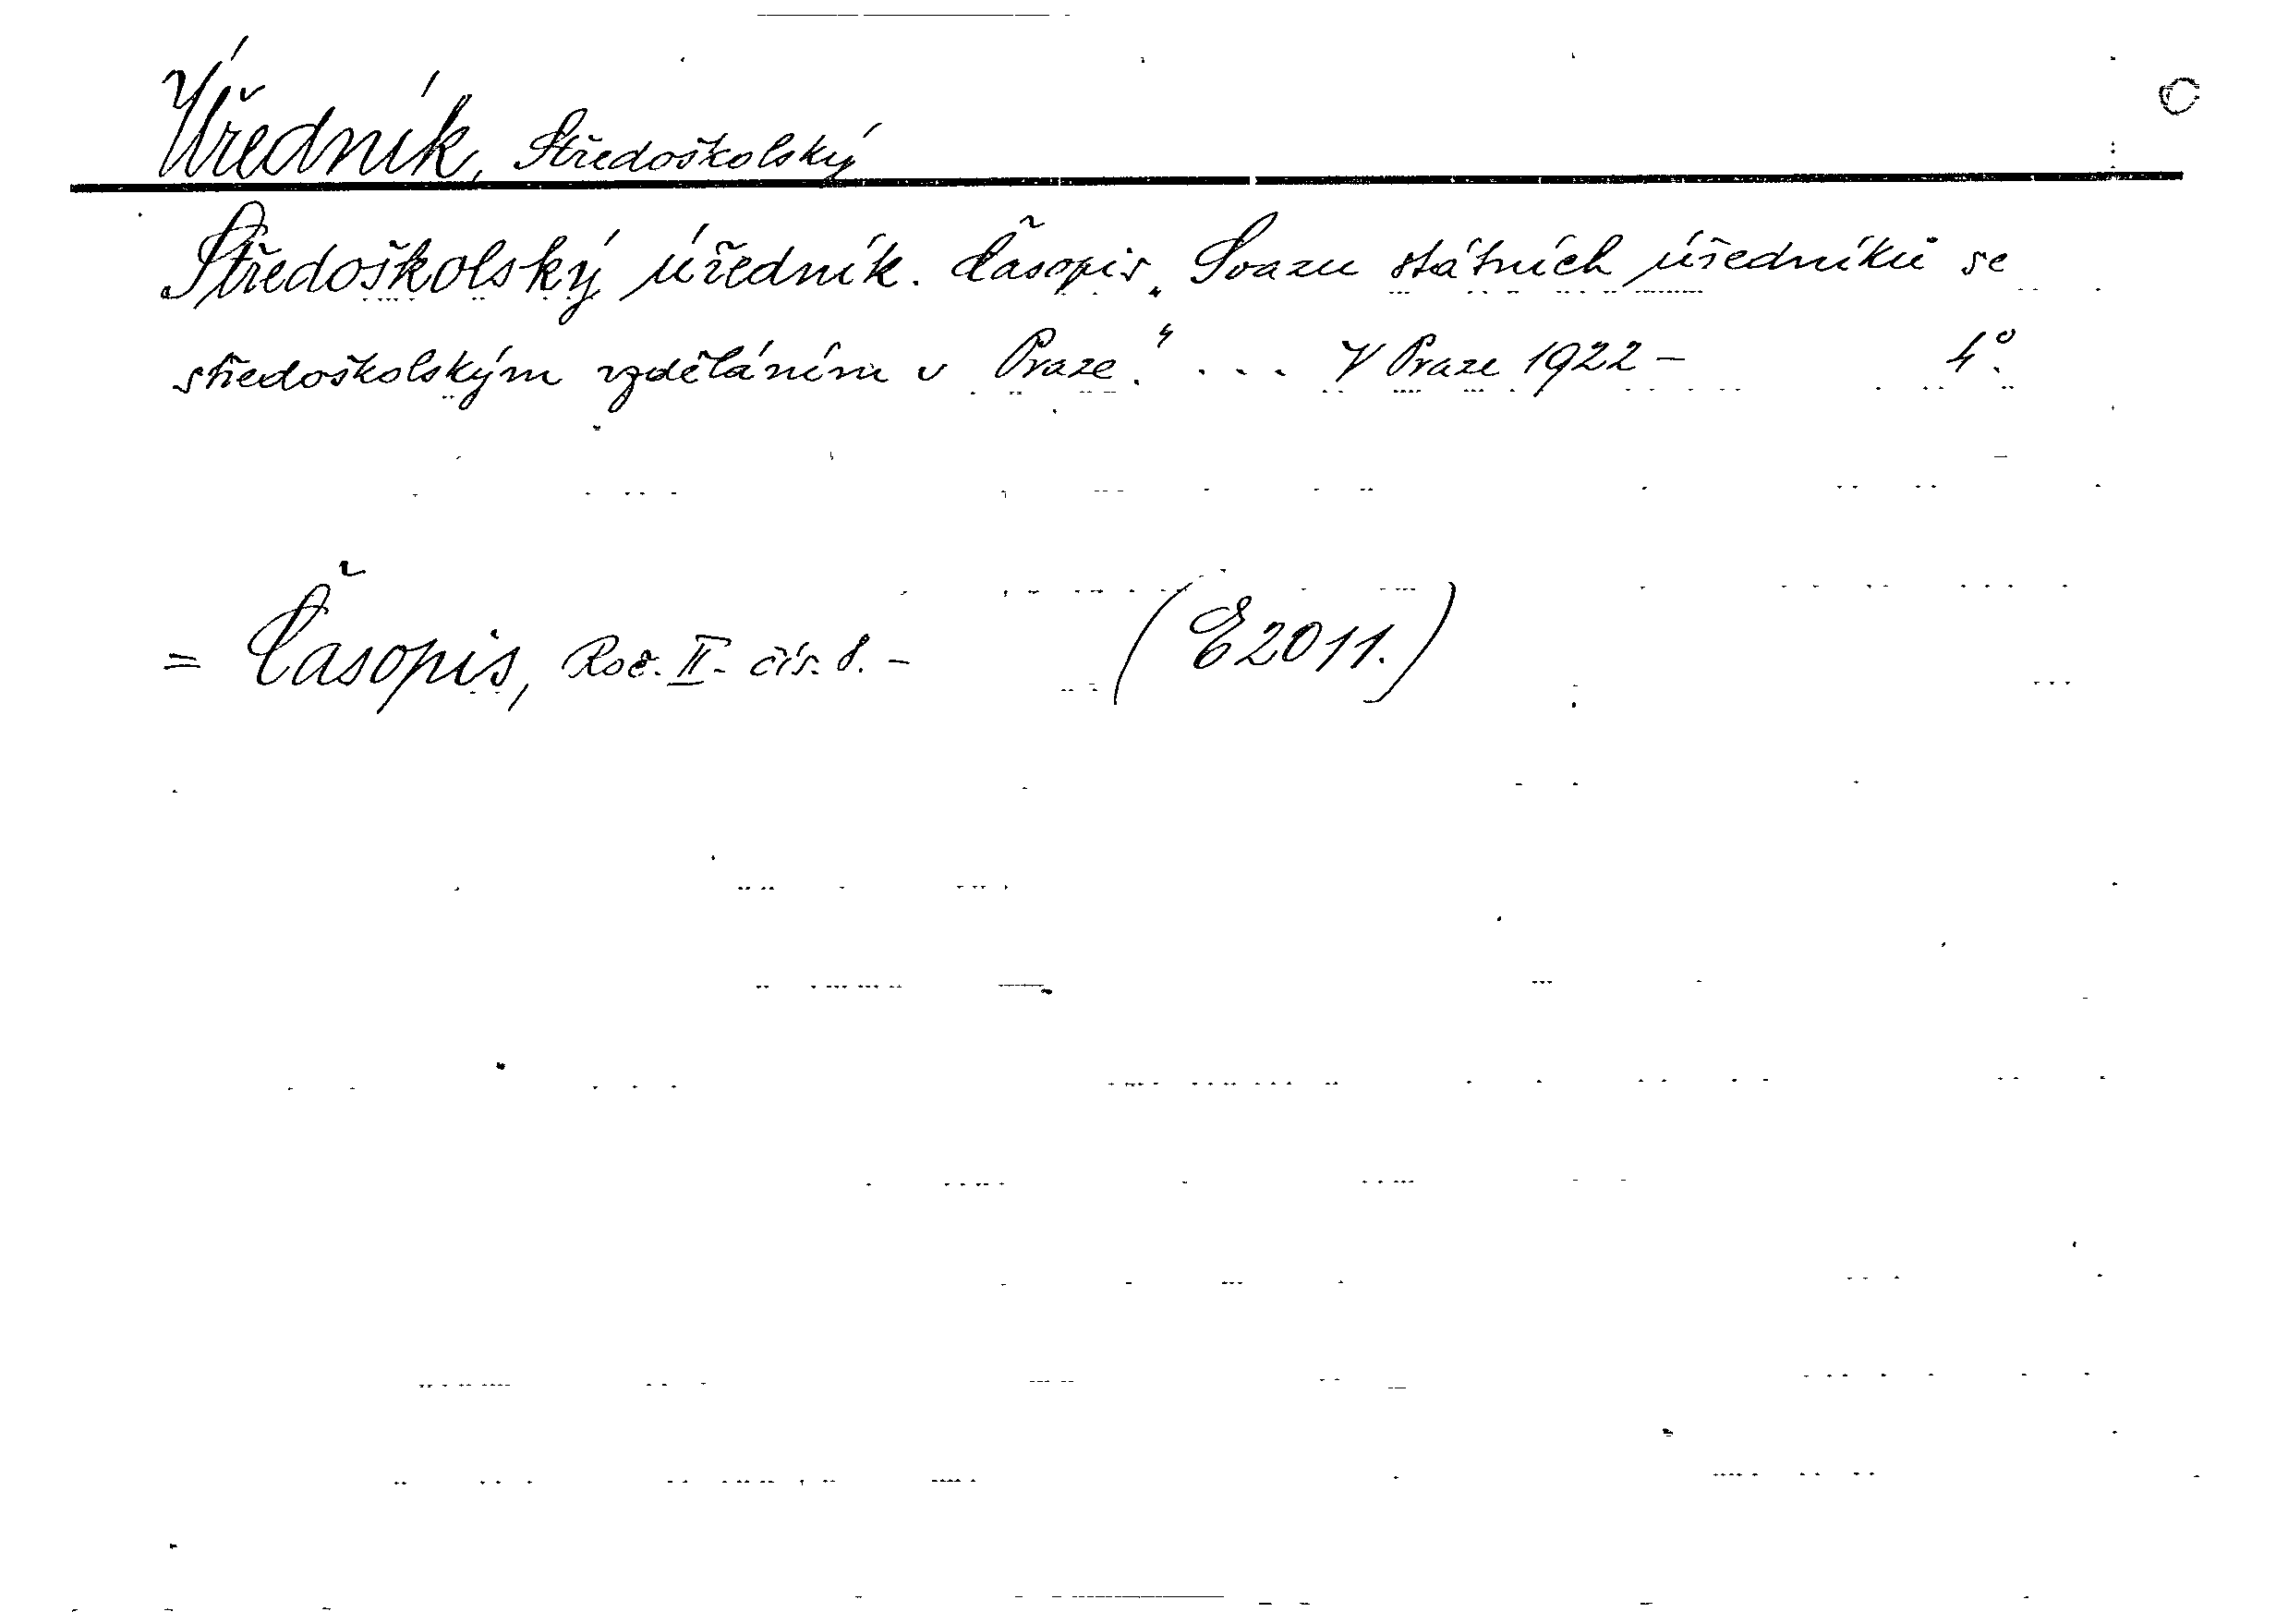 Úředník, Středoškolský
Středoškolský úředník. Časopis „Svazu státních úředníků se
středoškolským vzděláním v Praze.“ ... V Praze 1922 – 4°.
= Časopis, Roč. II. čís. 8. – (E2011.)